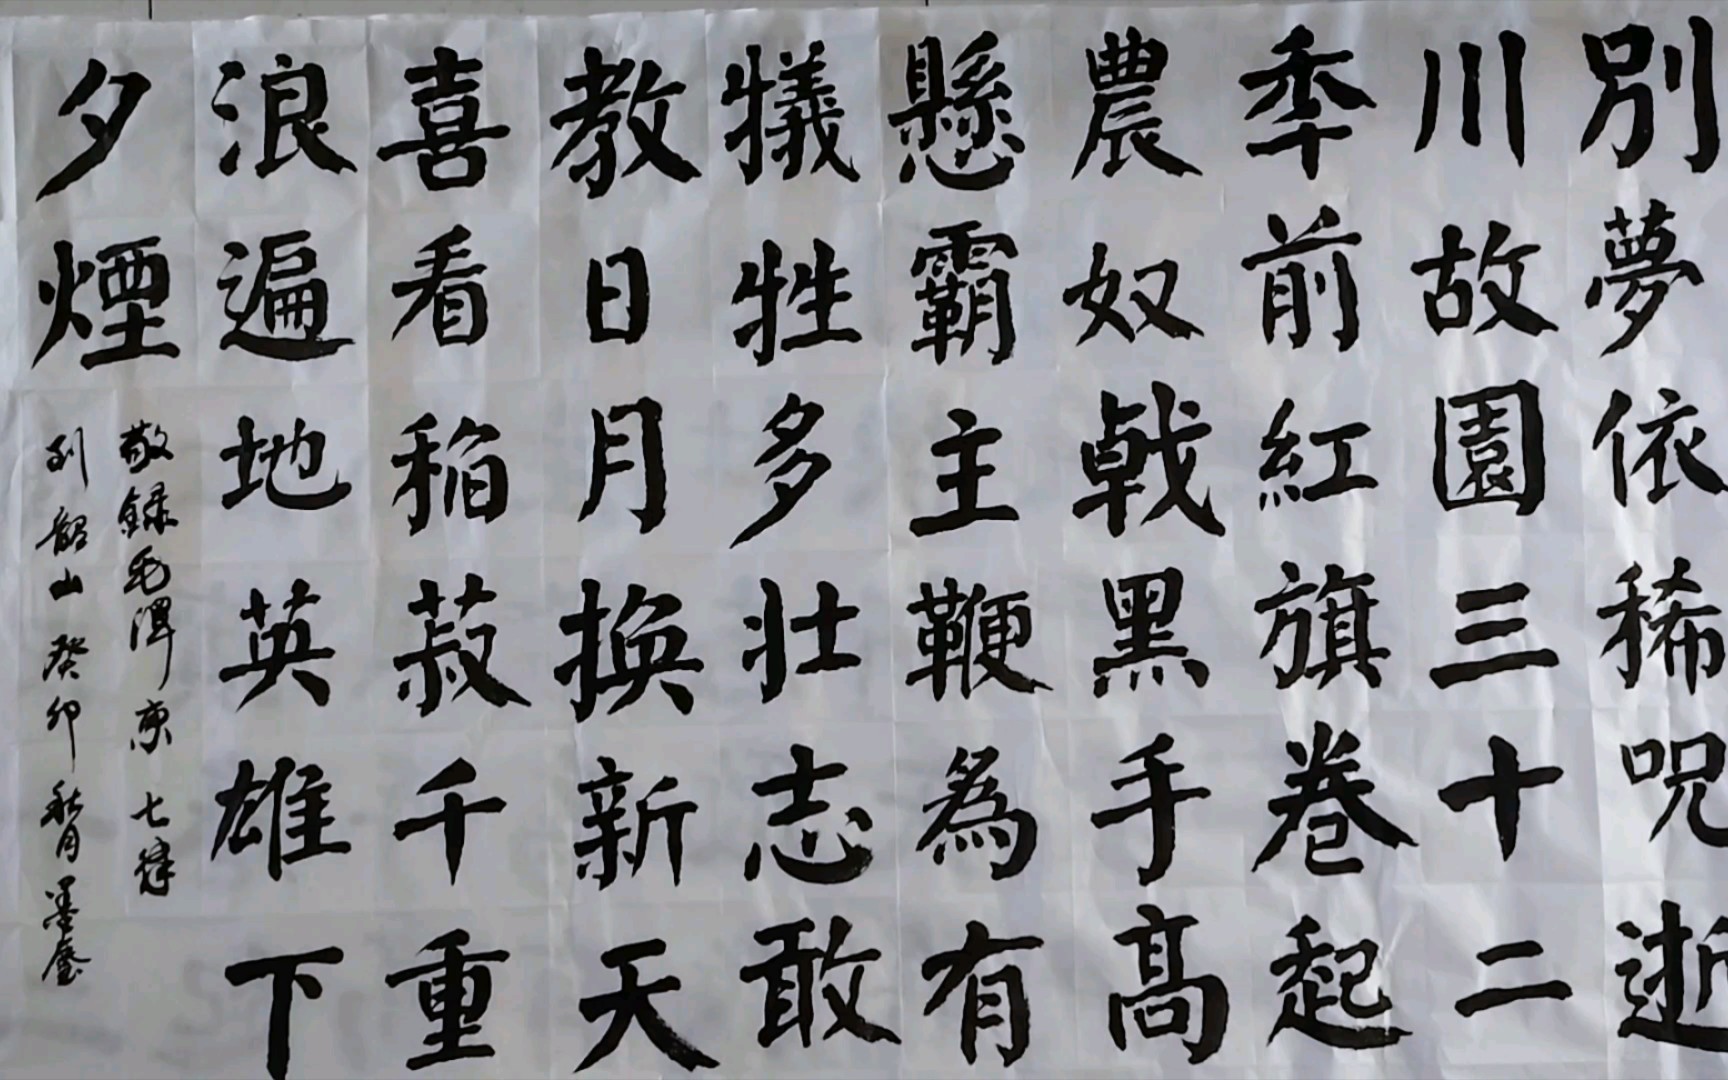 別夢依稀呪逝
川故園三十二
秊前紅旗卷起
農奴戟黑手高
懸霸主鞭為有
犠牲多壮志敢
教日月換新天
喜看稻菽千重
浪遍地英雄下
夕煙
敬録毛澤東七律
到韶山癸卯秋月墨莹